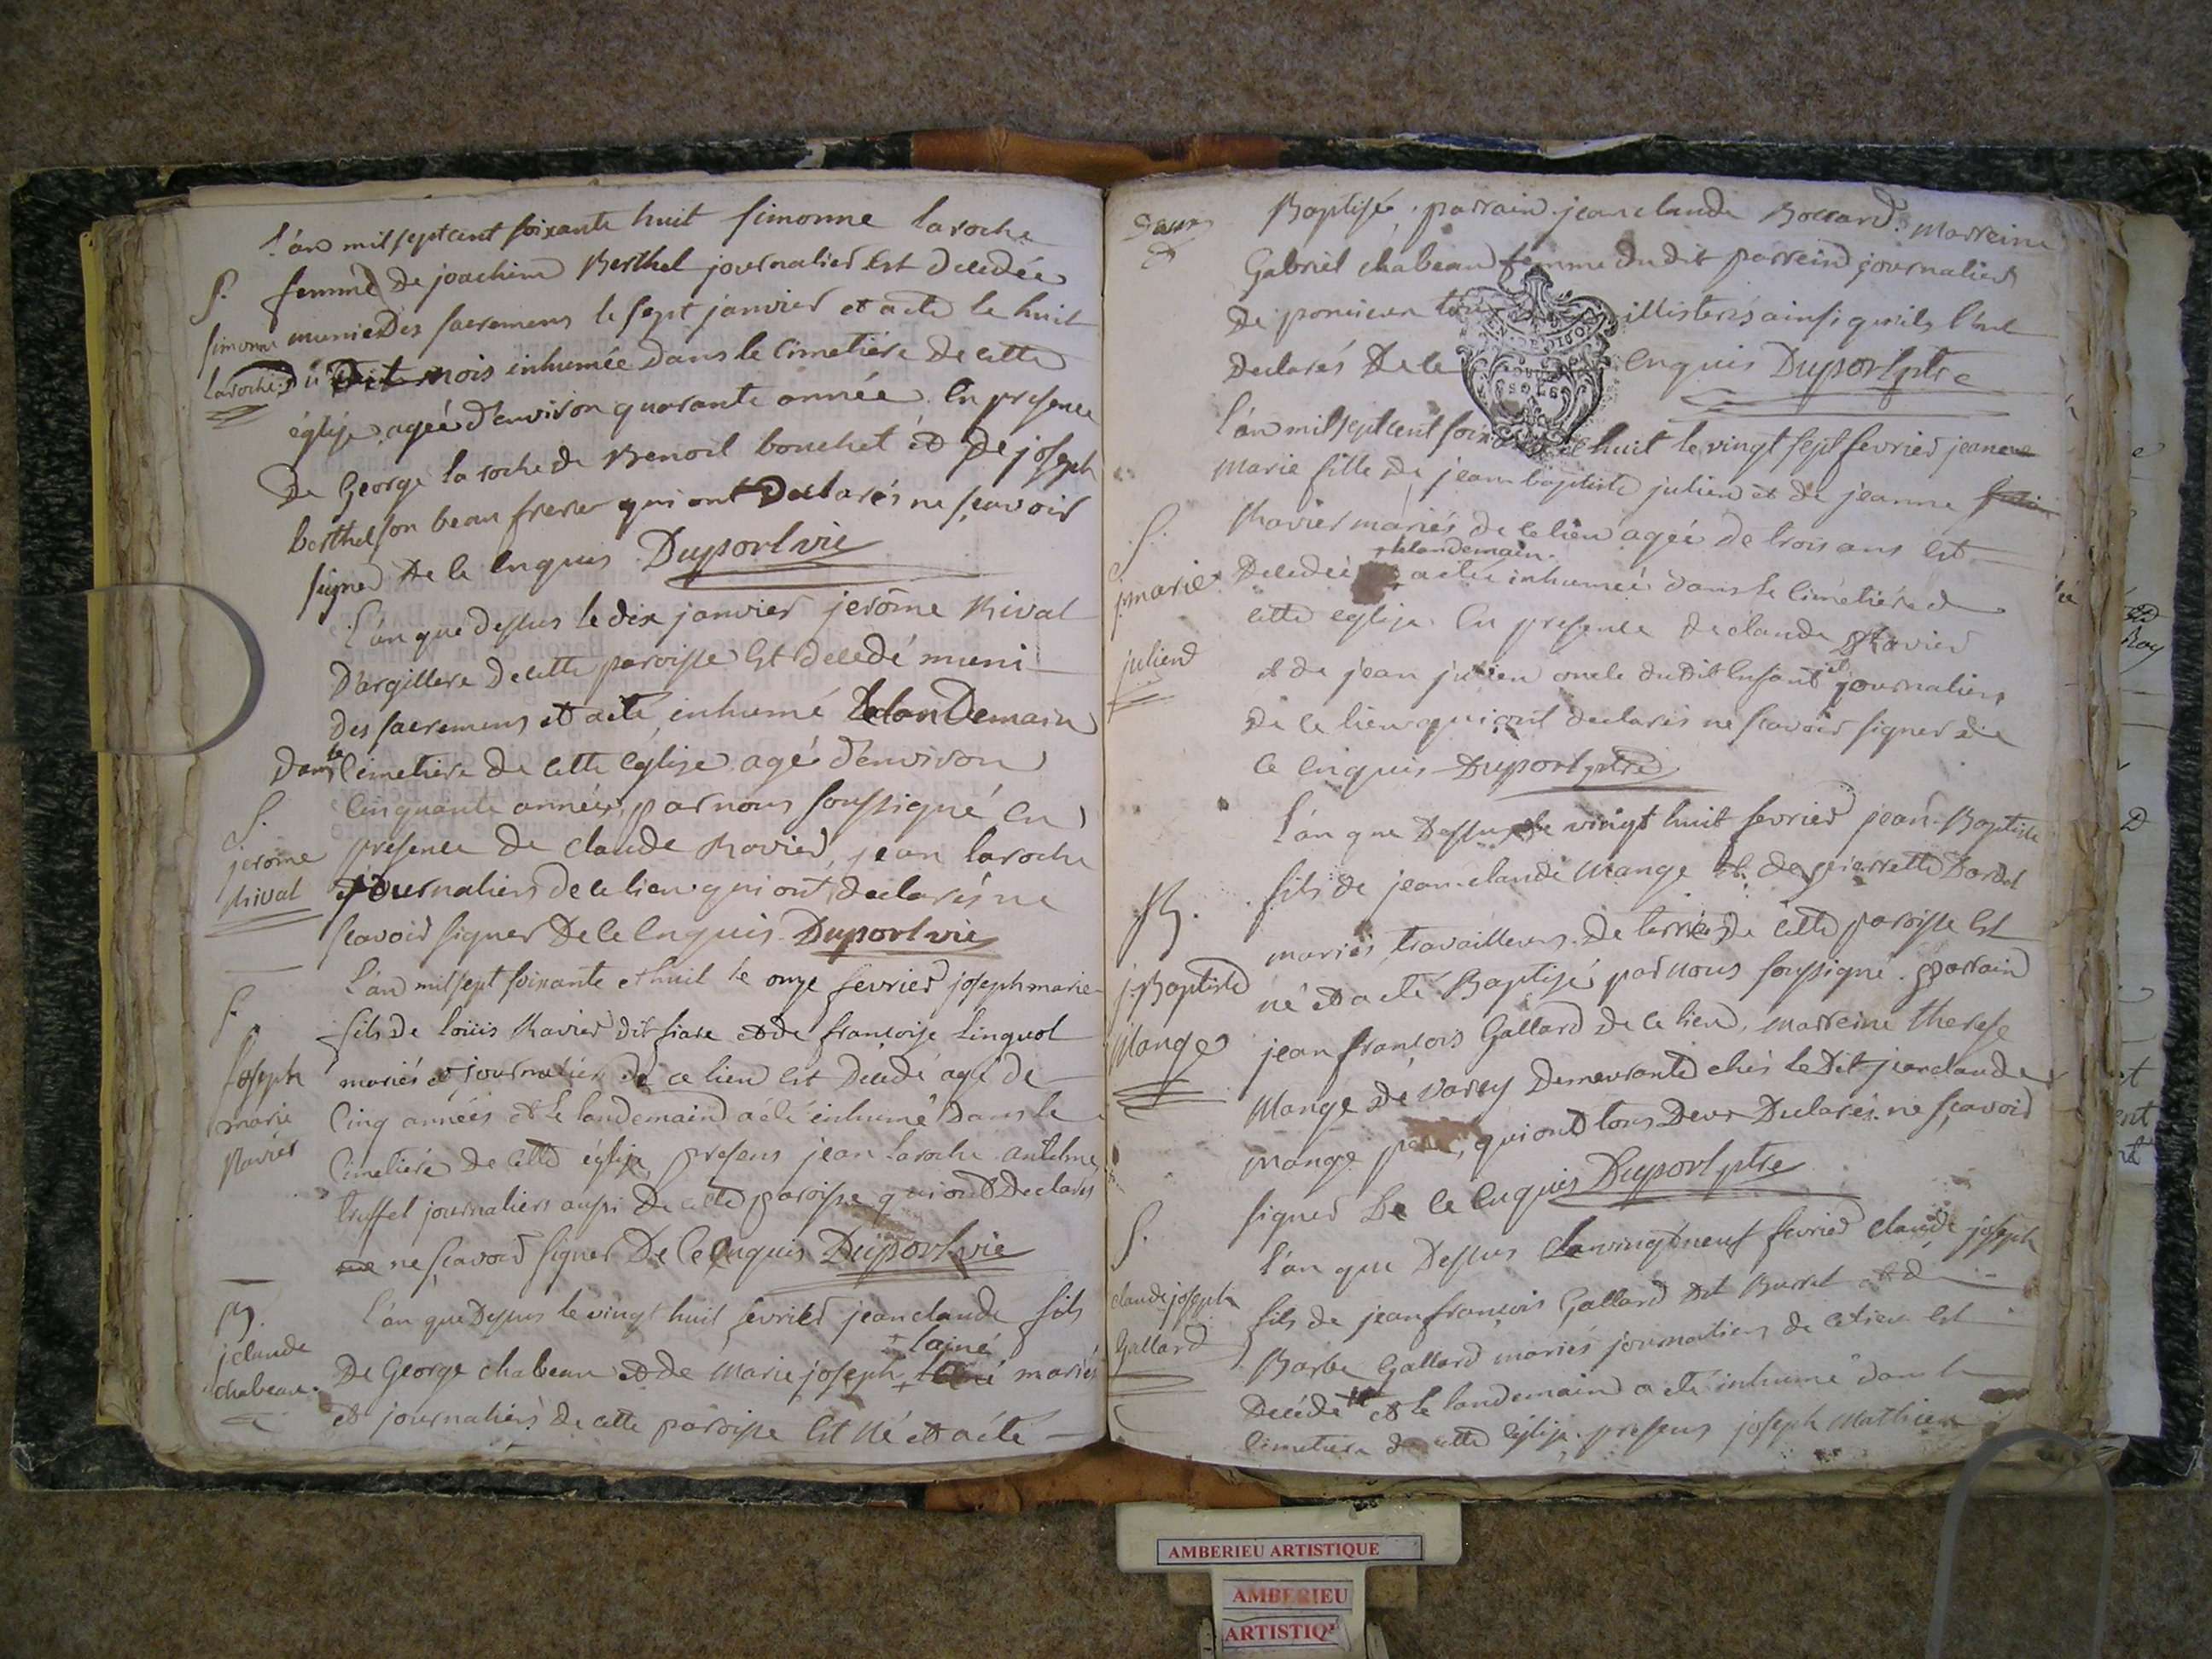 L'an mil sept cent soixante huit simonne laroche
S. femme de joachim Berthel journalier est decedée
simonne munie des sacremens le sept janvier et a eté le huit
laroche du dit mois inhumée dans le cimetiére de cette
église agée d'environ quarante année. en presence
de George la roche de Benoit bouchet et de joseph
berthel son beau frere qui ont declarés ne sçavoir
signer de ce enquis Duport vic
L'an que dessus le dix janvier jerôme Ravat
d'argillere de cette paroisse est decedé muni
des sacremens et a eté inhumé le lendemain
dans le cimetiere de cette église agé d'environ
S. cinquante années par nous soussigné en
jerome presence de claude Ravier, jean laroche
journaliers de ce lieu qui ont declarés ne
scavoir signer de ce enquis Duport vic
L'an mil sept soixante et huit le onze fevrier joseph marie
S. fils de loüis Ravier dit et de francoise Linguol
joseph mariés et journaliers de ce lieu est decedé agé de
marie cinq années et le landemain a eté inhumé dans le
Ravier cimetiére de cette église presens jean Laroche antelme
truffel journaliers aussi de cette paroisse qui ont declarés
ne sçavoir signer de ce enquis Duport vic
B. L'an que dessus le vingt huit fevrier jean claude fils
j claude + lainé
chabeau. de George chabeau et de Marie joseph + mariés
et journaliers de cette paroisse est né et a eté
Baptisé. parrain jean claude Boccard. marreine
Gabriel chabeau femme du dit parrein journaliers
de poncieux illisterés ainsi qu'ils l'ont
declarés de ce enquis Duport ptre
L'an mil sept cent soixante huit le vingt sept fevrier jeanne
marie fille de jean baptiste julien et de jeanne
S. Ravier mariés de ce lieu agée de trois ans est
+ le landemain.
j marie decedée a eté inhumée dans le cimétiére de
cette eglise. en presence de claude Ravier
julien et de jean julien oncle du dit enfant journaliers
de ce lieu qui ont declarés ne scavoir signer de
ce enquis Duport ptre
L'an que dessus le vingt huit fevrier jean Baptiste
B. fils de jean claude Mange et de pierrette Dardel
mariés travailleurs de terre de cette paroisse est
j. Baptiste né et a eté Baptisé par nous soussigné. parrain
Mange jean françois Gallard de ce lieu, marreine therese
Mange de varey demeurante chés le dit jean claude
mange qui ont tous deux declarés ne sçavoir
signer de ce enquis Duport ptre
S. L'an que dessus le vingt neuf fevrier claude joseph
claude joseph fils de jean françois Gallard dit Burret et de
Gallard Barbe Gallard mariés journaliers de ce lieu est
decédé et le landemain a eté inhumé dans le
cimetiere de cette église. presens joseph Mathieu
AMBERIEU ARTISTIQUE
AMBERIEU
ARTISTIQ